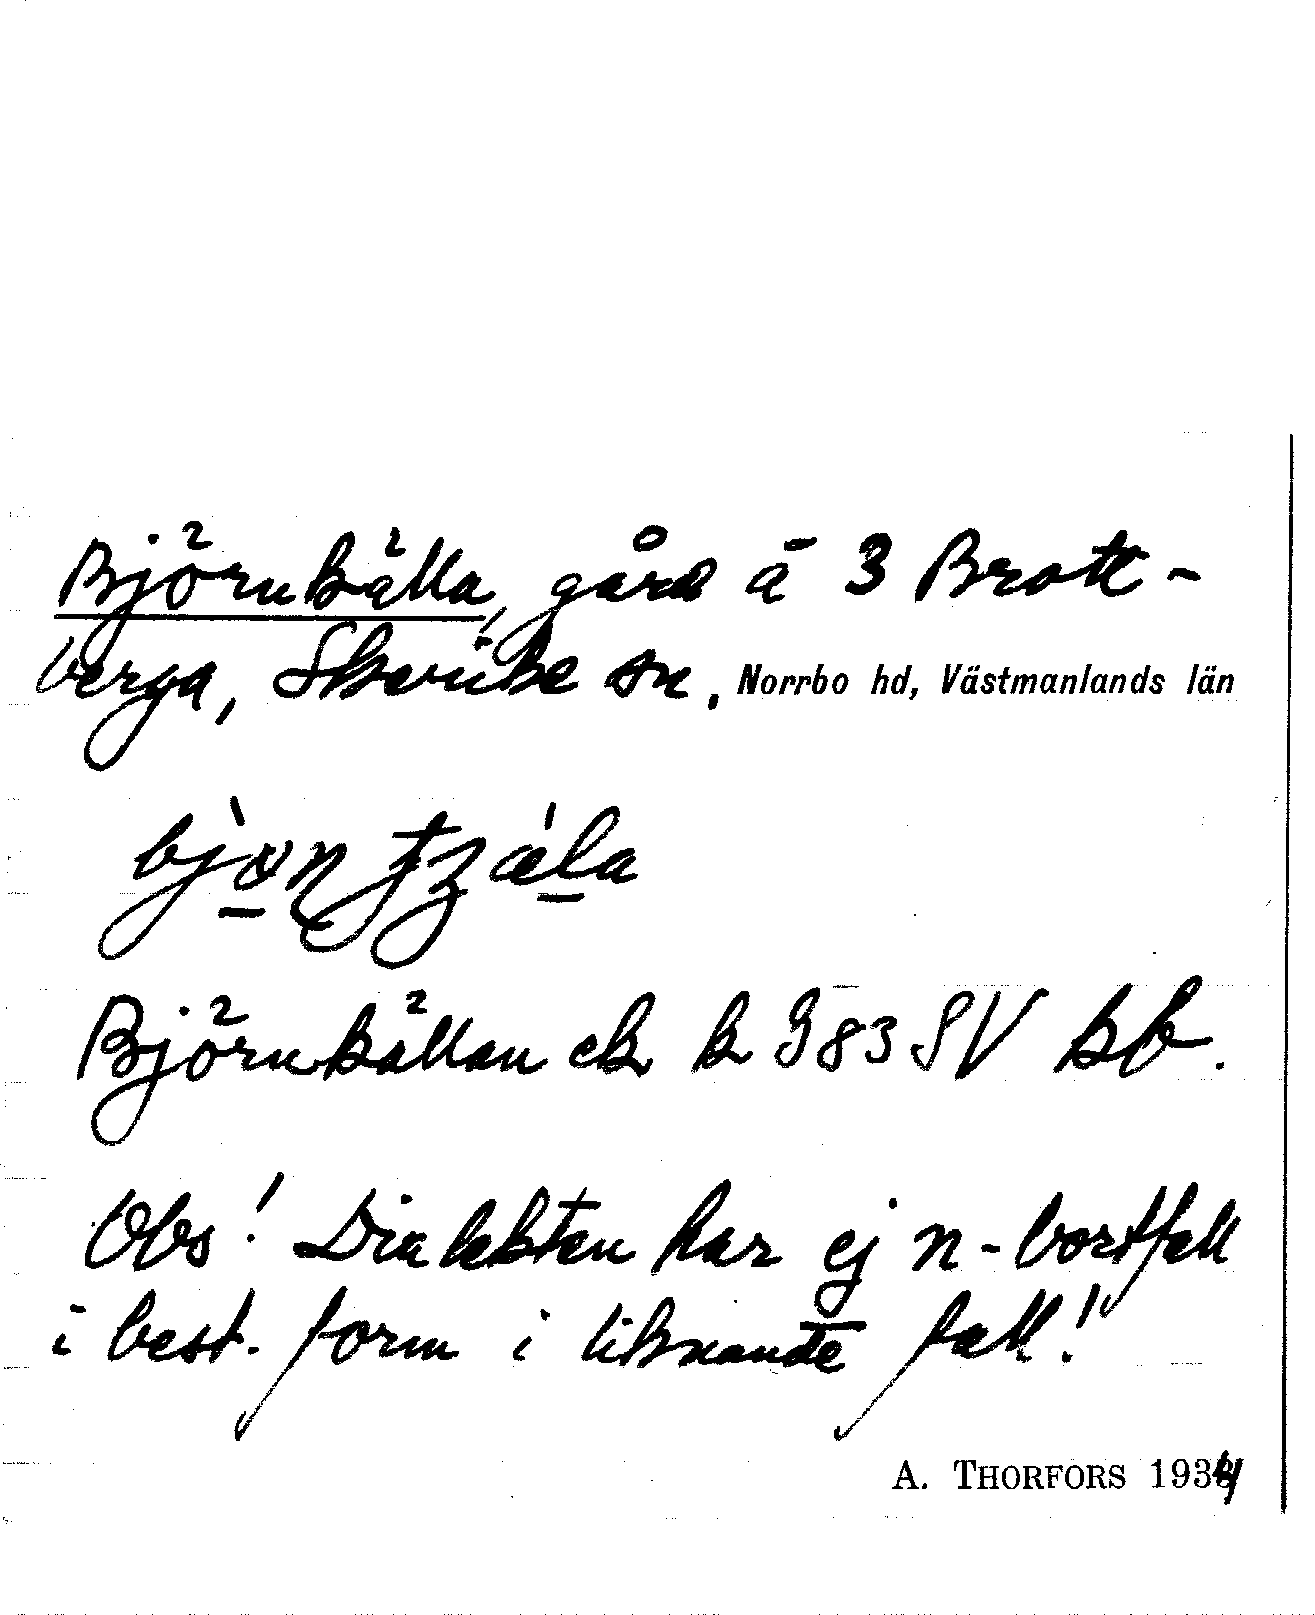 Björnkälla, gård å 3 Brott-
berga, Skerike sn, Norrbo hd, Västmanlands län
Björnkällan ek k 983 SV bb.
Obs! Dialekten har ej n-bortfall
i best. form i liknande fall!
A. THORFORS 1934